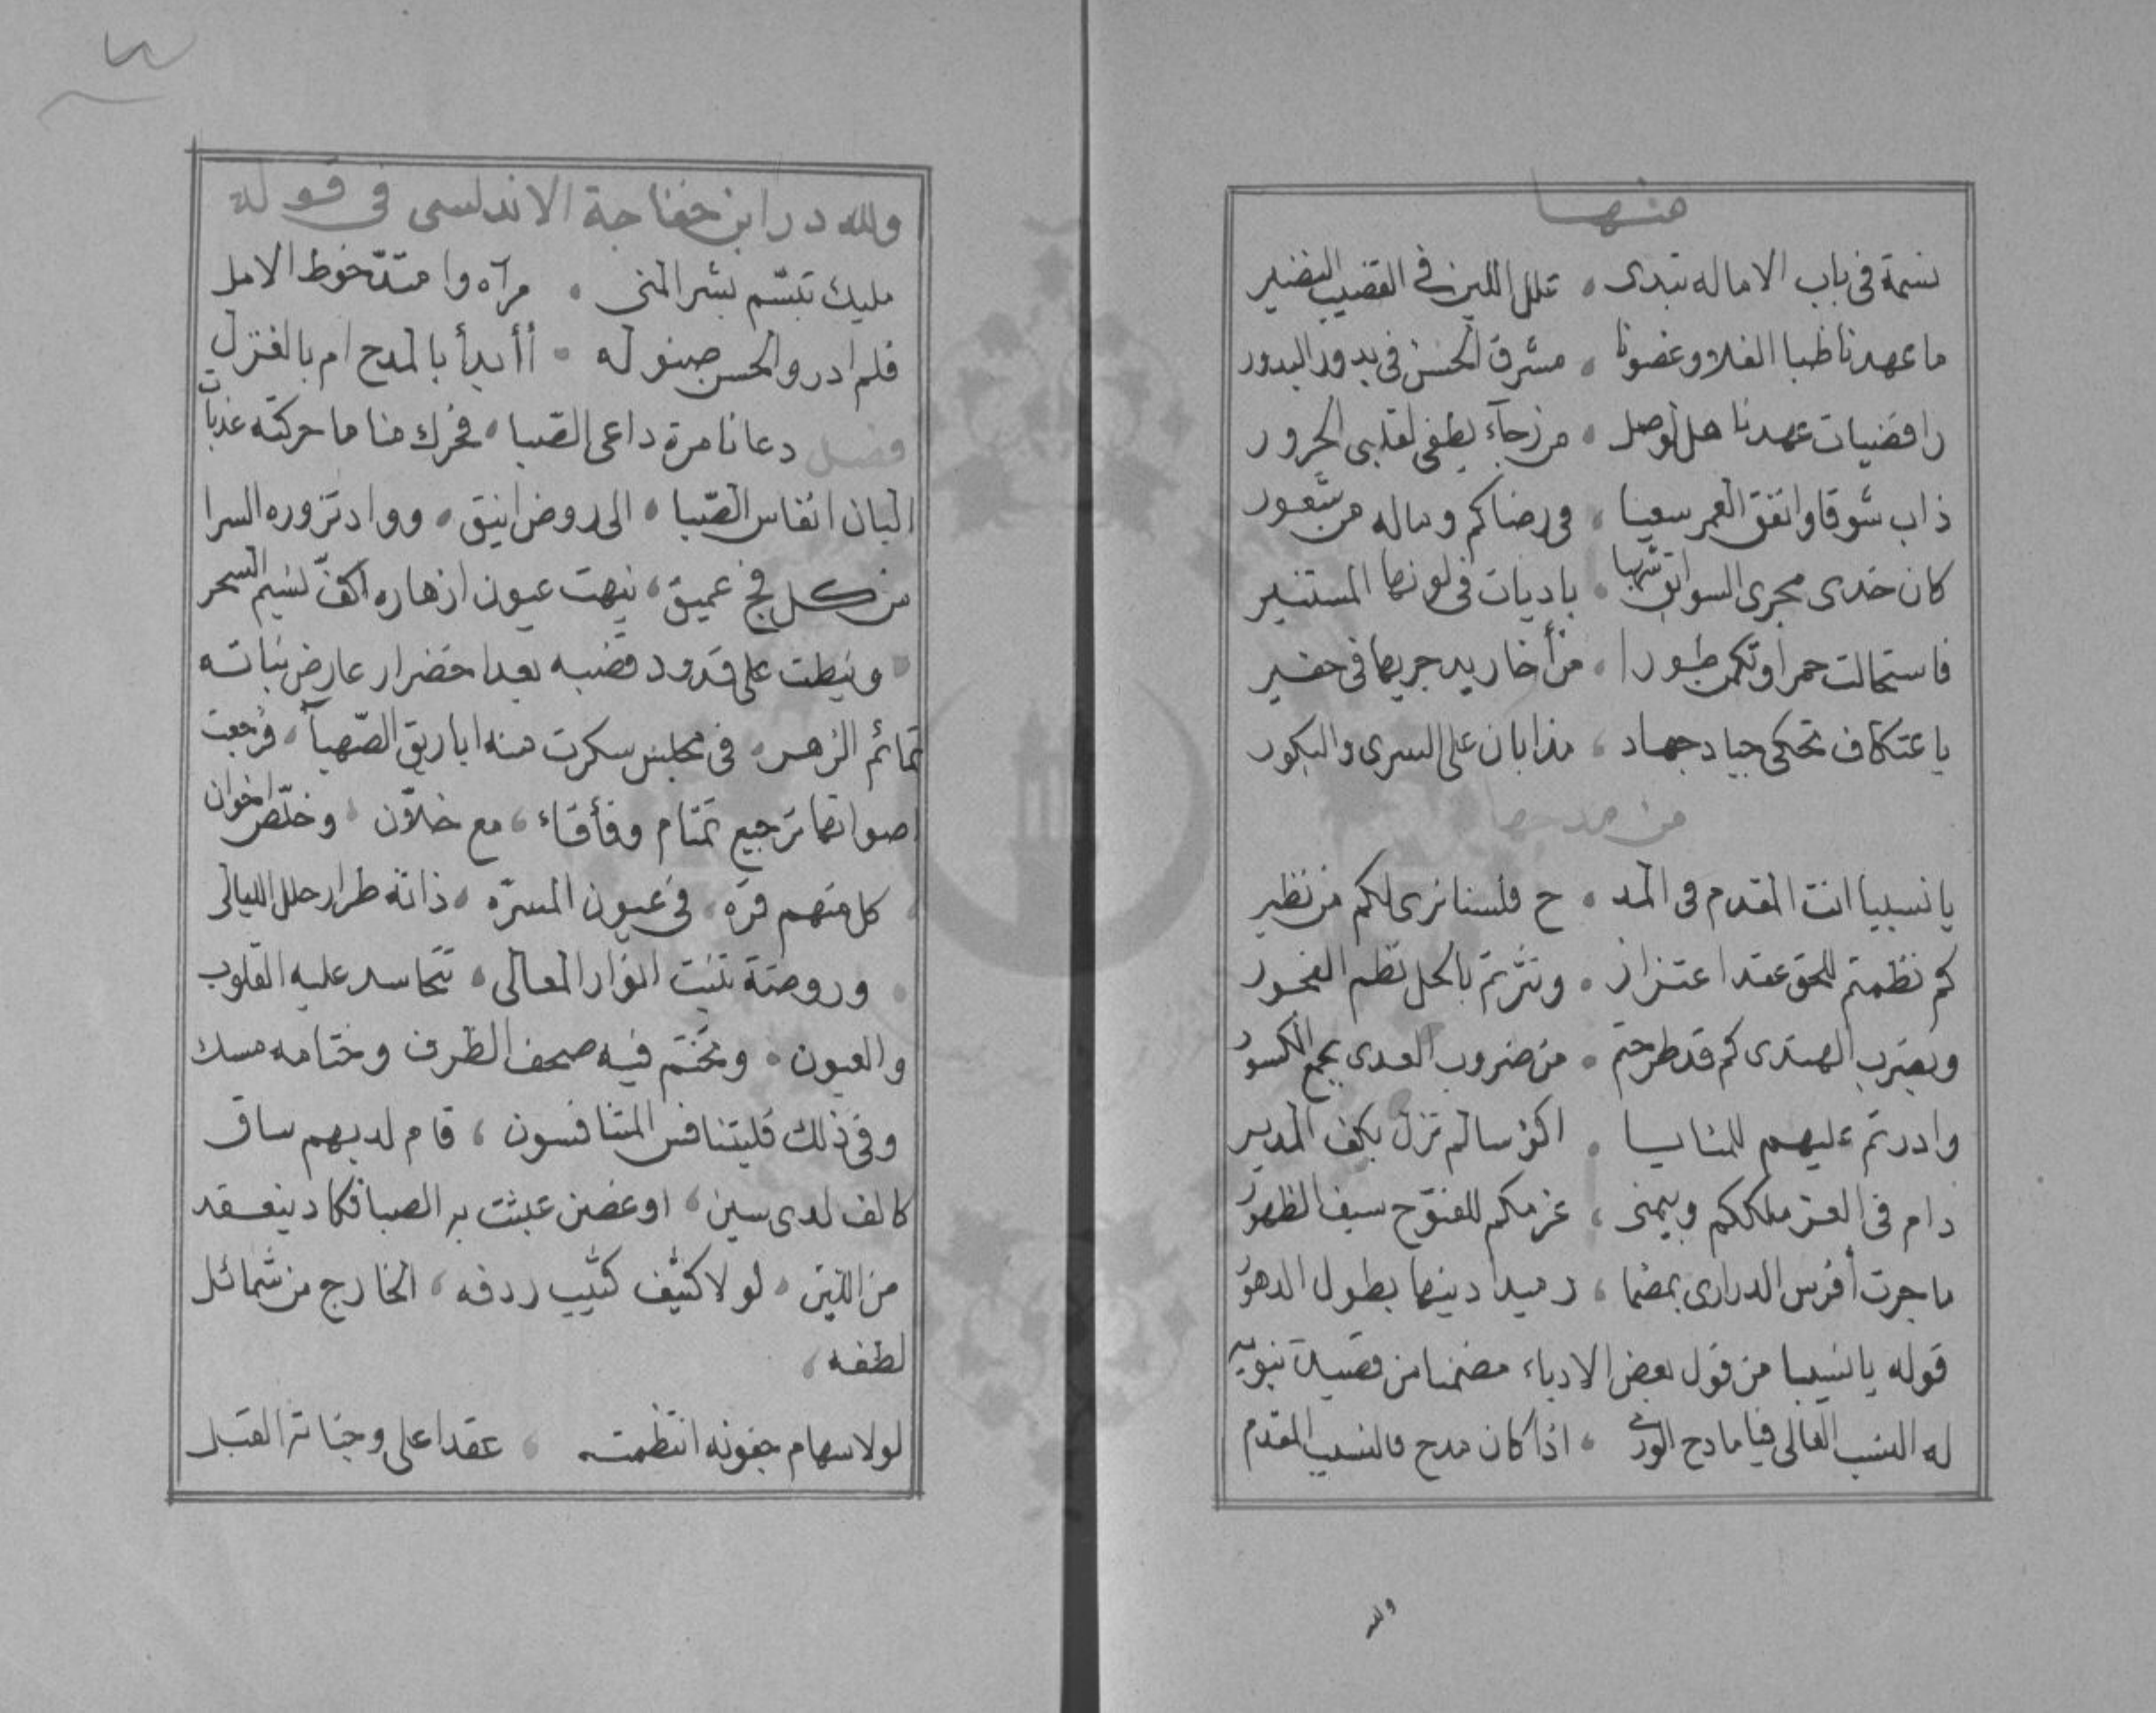 منها
نسمة فى باب الاماله تبدى ، علل اللين فى القضيب النضير
ما عهدنا ظبا الفلا وغصونا ، مشرق الحسن فى بدور البدور
رافضيات عهدنا هل لوصل ، من رجآء يطفى لقلبى الحرور
ذاب شوقا وانفق العمر سعيا ، فى رضاكم وماله من شعور
كان خدى مجرى السوابق شهبا ، باديات فى لونها المستنير
فاستحالت حمرا وتكمن طورا ، من أخاديد جريها فى حفير
باعتكاف تحكى جياد جهاد ، مذ ابان على السرى والبكور
من مدحها
يا نسيبا انت المقدم فى المد ، ح فلسنا نرى لكم من نظير
كم نظمتم للحق عقد اعتزاز ، ونثرتم بالحل نظم الفجور
وبضرب الهندى كم قد طرحتم ، من ضروب العدى بجمع الكسور
وادرتم عليهم للمنايا ، اكؤسا لم تزل بكف المدير
دام فى العز ملككم وبيمنى ، عزمكم للفتوح سيف الظهور
ما جرت أفرس الدرارى بمضما ، ر ميادينها بطول الدهور
قوله يا نسيبا من قول بعض الادباء مضمنا من قصيدة نبويه
له النسب العالى فيا مادح الورى ، اذا كان مدح فالنسيب المقدم
ولله
ولله در ابن خفاجة الاندلسى فى قوله
مليك تبسّم بشر المنى ، مرآه وامتدّ خوط الامل
فلم ادر والحسن صنو له ، أأبدأ بالمدح ام بالغزل
فصل دعانا مرة داعى الصّبا ، فحرك منا ما حركته عذبات
البان انفاس الصّبا ، الى روض انيق ، وواد تزوره السرا
من كل فج عميق ، نبهت عيون ازهاره اكفّ نسيم السحر
، ونيطت على قدود قضبه بعد اخضرار عارض نباته
تمائم الزهر ، فى مجلس سكرت منه اباريق الصّهبآ ، فرجعت
اصواتها ترجيع تمتام وفأفاء ، مع خلاّن ، وخلّص اخوان
، كل منهم قرة ، فى عيون المسرّه ، ذاته طراز حلل الليالى
، وروضة تنبت انوار المعالى ، تتحاسد عليه القلوب
والعيون ، وتختم فيه صحف الظرف وختامه مسك
وفى ذلك فليتنافس المتنافسون ، قام لديهم ساق
كالف لدى سين ، او غصن عبثت به الصبا فكاد ينعقد
من اللين ، لولا كثيف كثيب ردفه ، الخارج من شمائل
لطفه ،
لولا سهام جفونه انتظمت ، عقدا على وجناته القبل